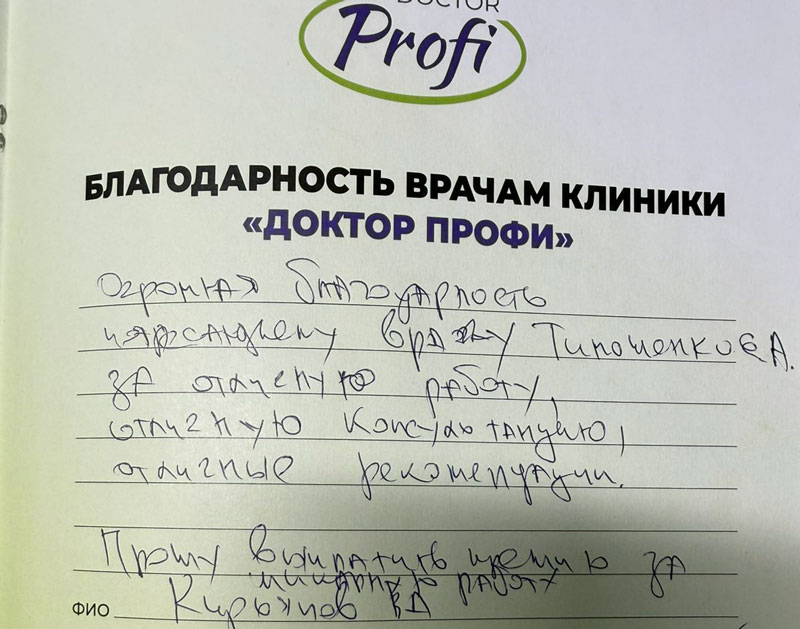 DOCTOR
Profi
БЛАГОДАРНОСТЬ ВРАЧАМ КЛИНИКИ
«ДОКТОР ПРОФИ»
Огромная благодарность
врачу Тимошенко Е.А.
за отличную работу,
отличную консультацию,
отличные рекомендации.
Прошу выплатить премию за
работу
ФИО